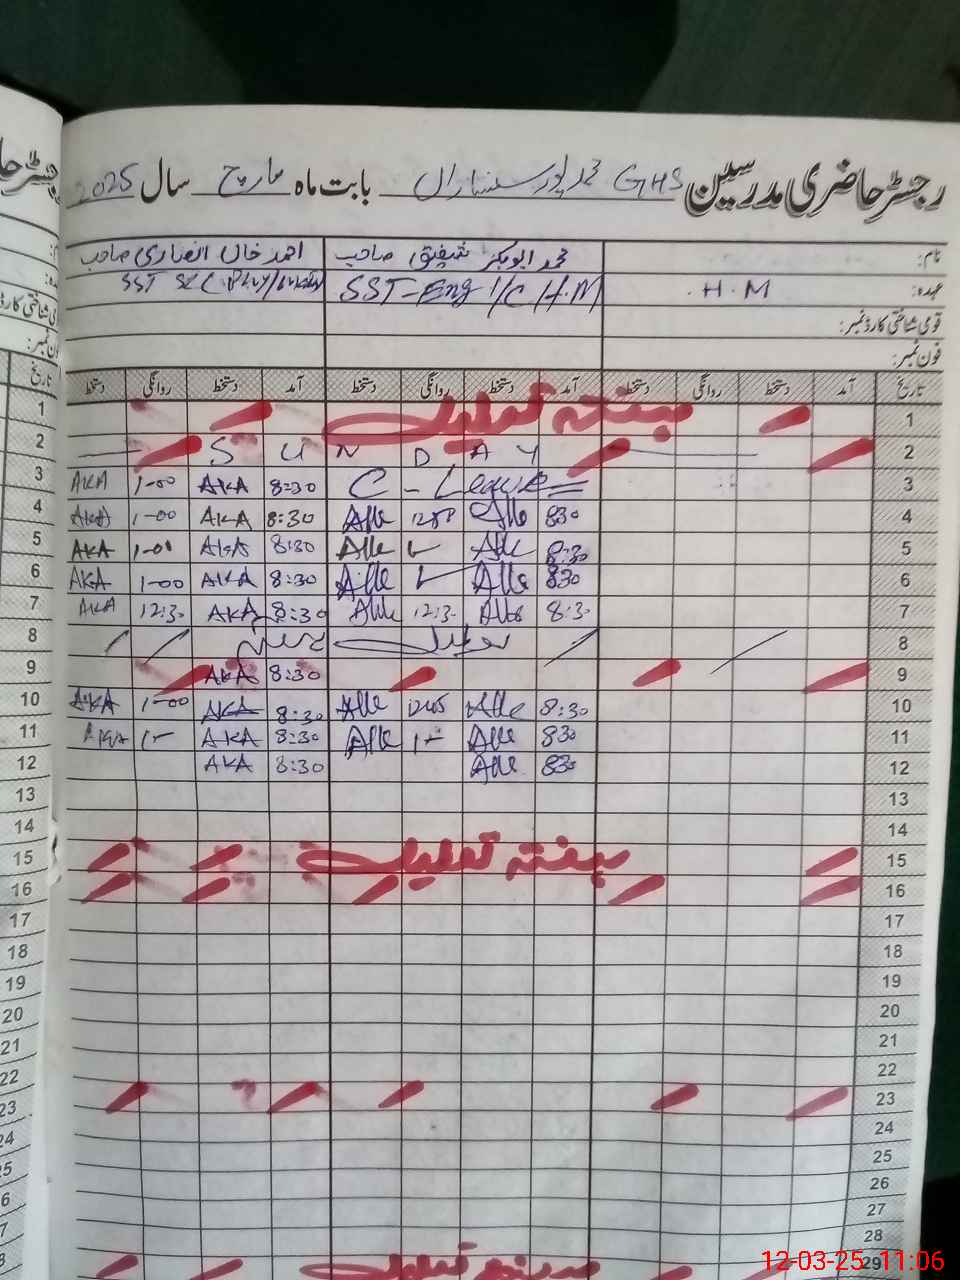 رجسٹر حاضری مدرسین GHS محمد پور سنساراں بابت ماہ مارچ سال 2025
نام: محمد ابوبکر شفیق صاحب احمد خان انصاری صاحب
عہدہ: H.M SST-Eng I/C H.M SST
قومی شناختی کارڈ نمبر:
فون نمبر:
تاریخ آمد دستخط روانگی دستخط آمد دستخط روانگی دستخط آمد دستخط روانگی دستخط
1 ہفتہ تعطیل
2 SUNDAY
3 C-Leave 8:30 AKA 1-00 AKA
4 830 8:30 AKA 1-00 AKA
5 8:30 8:30 AKA AKA
6 830 8:30 AKA 1-00 AKA
7 8:30 12:30 8:30 AKA 12:30 AKA
8
9 8:30 AKA
10 8:30 1245 8:30 AKA 1-00 AKA
11 830 1- 8:30 AKA 1- AKA
12 830 8:30 AKA
13
14
15 ہفتہ تعطیل
16
17
18
19
20
21
22
23
24
25
26
27
28
29 ہفتہ تعطیل
12-03-25 11:06